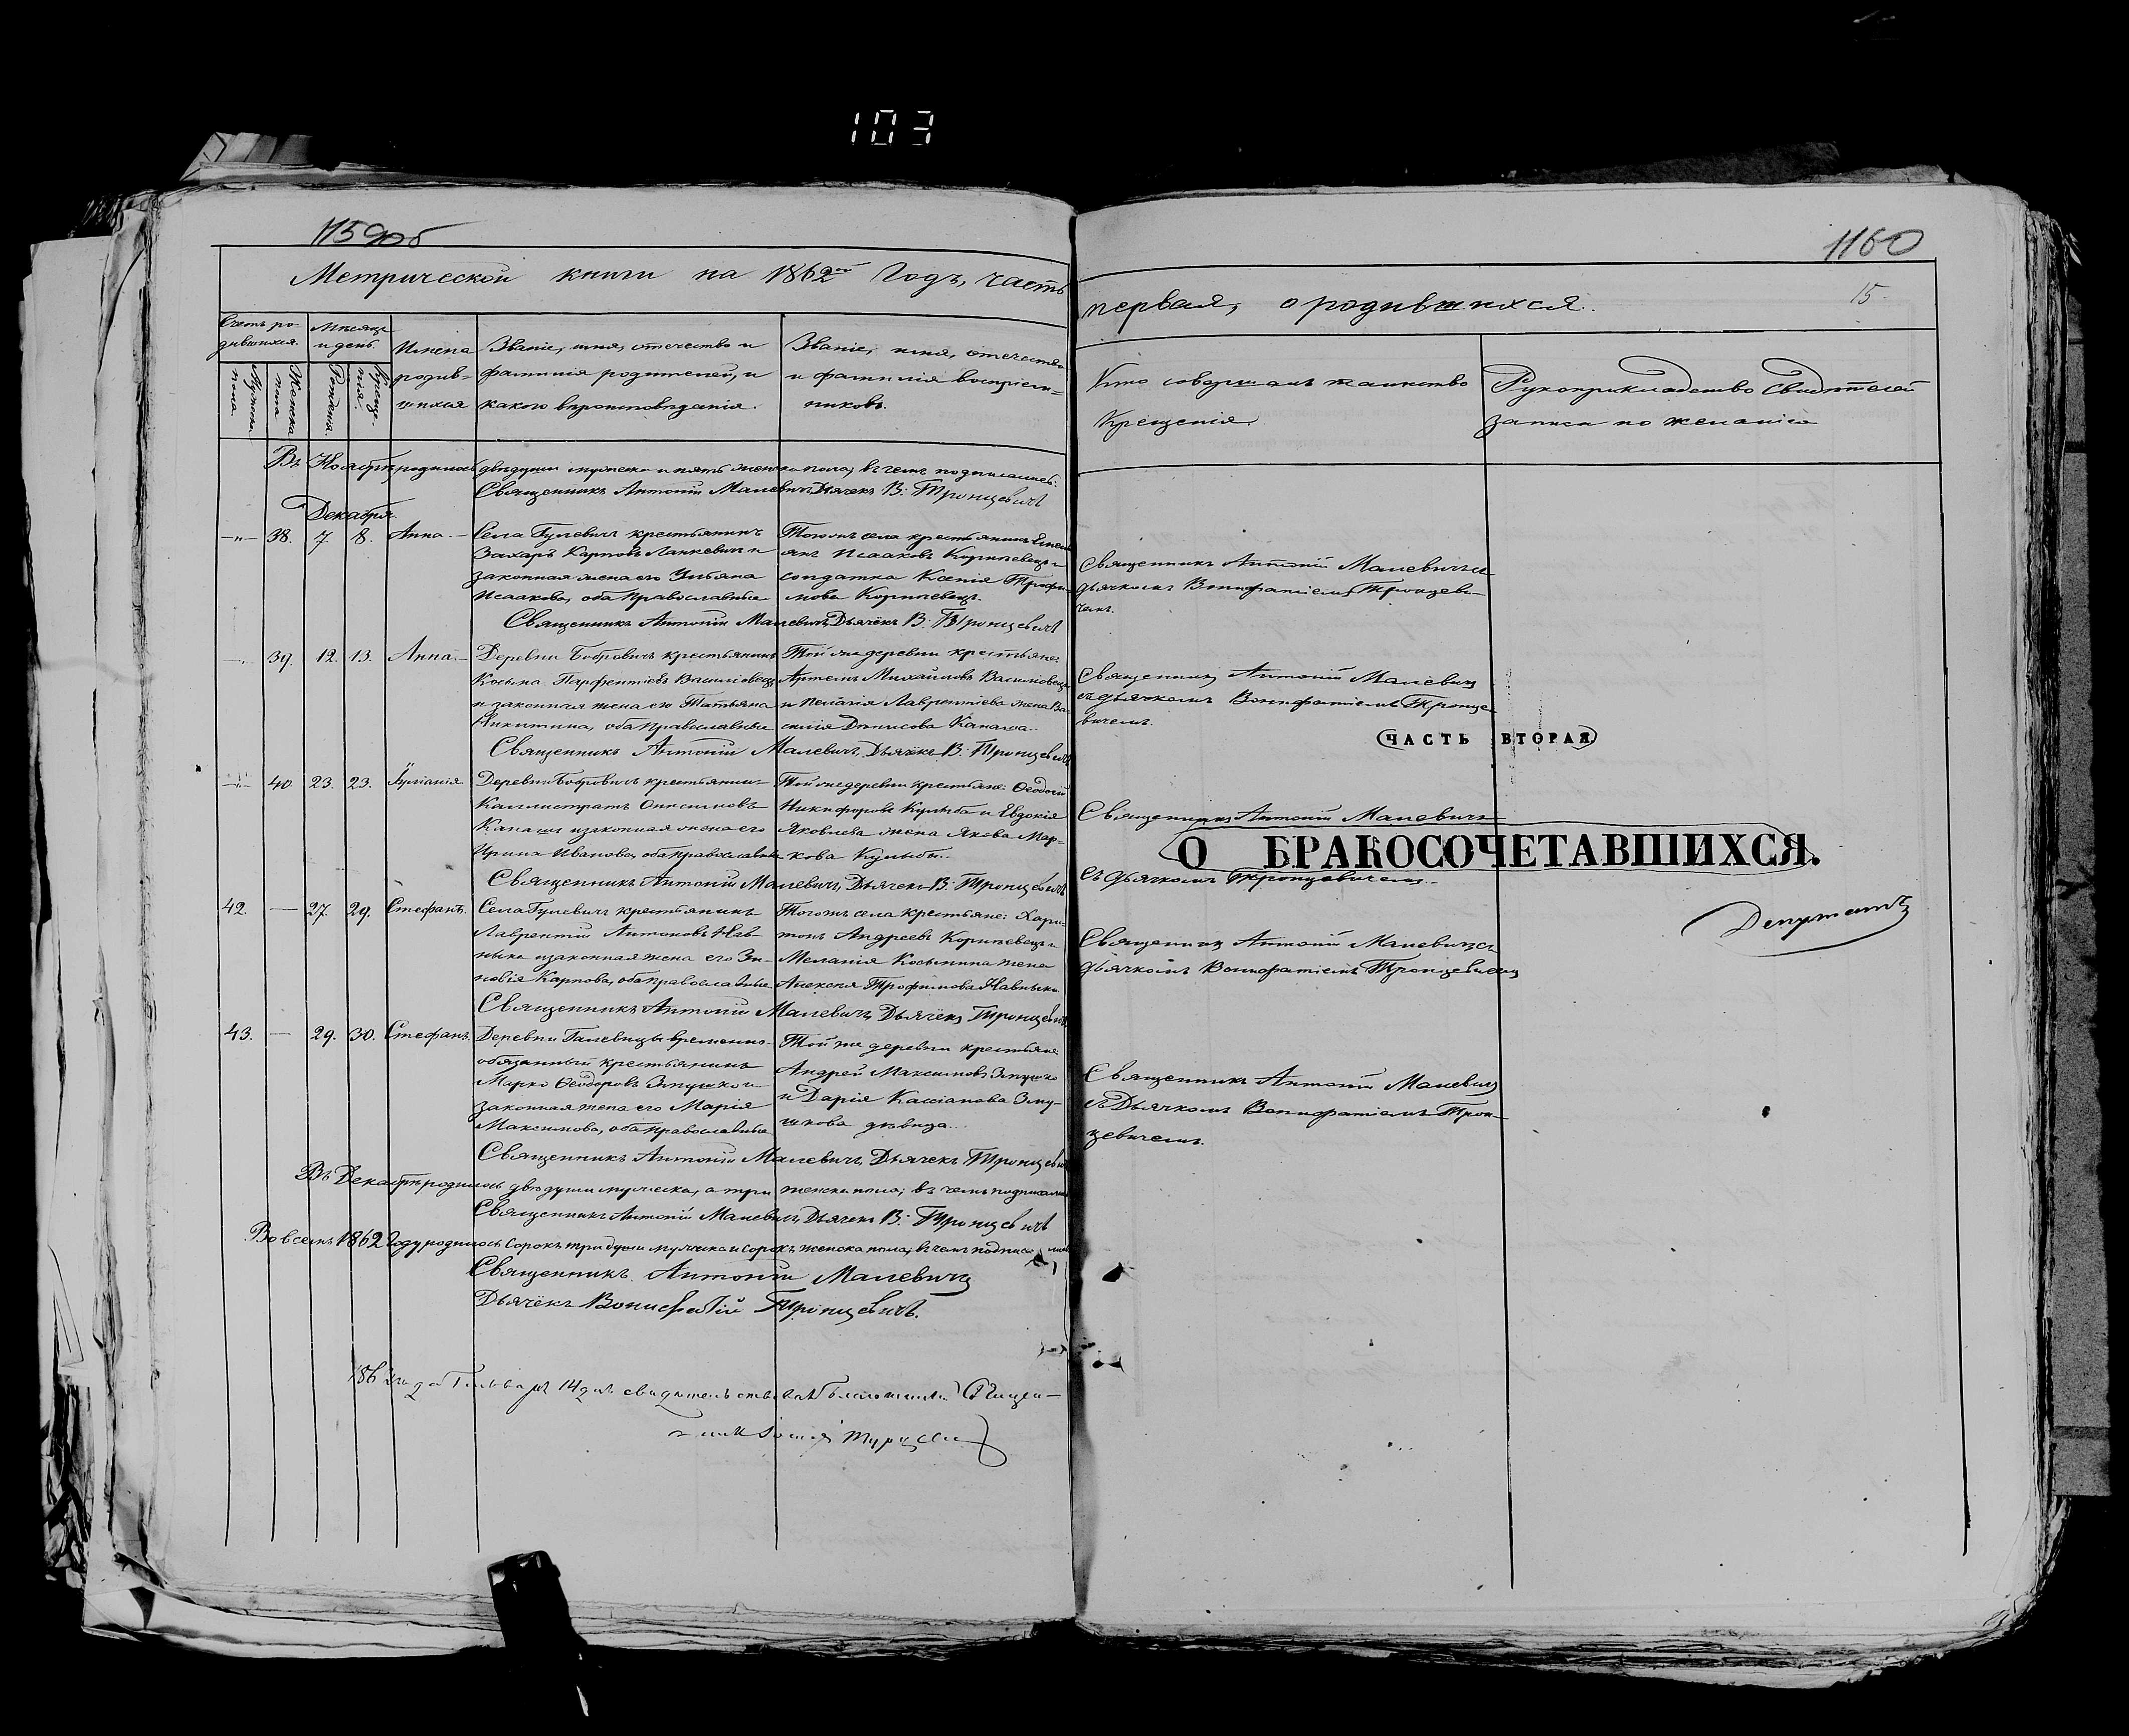 103
1159об
1160
15
Метрической книги на 1862ой Годъ, часть
первая, о родившихся.
Счетъ ро-
дившихся.
Мужеска
пола.
Женска
пола
Мѣсяцъ
и день.
Рожденія.
Креще-
нія.
Имена
родив-
шихся
Званіе, имя, отечество и
фамилія родителей, и
какого вѣроисповѣданія.
Званіе, имя, отечество
и фамилія воспріем-
никовъ.
Кто совершалъ таинство
Крещенія.
Рукоприкладство свидѣтелей
записи по желанію
Въ Ноябрѣ родилось двѣ души мужеска и пять женска пола; въ чемъ подписались:
Священникъ Антоній Малевичъ, Дьячекъ В: Тронцевичъ
Декабря.
38. 7. 8. Анна.
Села Гулевичъ крестьянинъ
Захаръ Карповъ Ланкевичъ и
законная жена его Ульяна
Исаакова, оба Православные
Тогожъ села крестьянинъ Емель
янъ Исааковъ Корневецъ и
солдатка Ксенія Трофи-
мова Корневецъ.
Священникъ Антоній Малевичъ съ
дьячкомъ Вонифатіемъ Тронцеви-
чемъ.
Священникъ Антоній Малевичъ, Дьячекъ В: Тронцевичъ
39. 12. 13. Анна.
Деревни Бобровичъ крестьянинъ
Косьма Парфентіевъ Василовецъ
и законная жена его Татьяна
Никитина, оба Православные
Той же деревни крестьяне:
Артемъ Михайловъ Василовецъ
и Пелагія Лаврентіева жена Ва-
силія Денисова Канаша.
Священникъ Антоній Малевичъ
съ дьячкомъ Вонифатіемъ Тронце-
вичемъ.
Священникъ Антоній Малевичъ, Дьячекъ В: Тронцевичъ
ЧАСТЬ ВТОРАЯ
40. 23. 23. Іуліанія
Деревни Бобровичъ крестьянинъ
Каллистратъ Онисимовъ
Канашъ и законная жена его
Ирина Иванова, оба Православные
Той же деревни крестьяне: Ѳеодосій
Никифоровъ Кулыба и Евдокія
Яковлева жена Якова Мар-
кова Кулыбы.
Священникъ Антоній Малевичъ
съ дьячкомъ Тронцевичемъ.
О БРАКОСОЧЕТАВШИХСЯ.
Священникъ Антоній Малевичъ, Дьячекъ В: Тронцевичъ
Депутатъ
42. 27. 29. Стефанъ.
Села Гулевичъ крестьянинъ
Лаврентій Антоновъ Нав-
ныка и законная жена его Зи-
новія Карпова, оба Православные
Тогожъ села крестьяне: Хари-
тонъ Андреевъ Корневецъ и
Меланія Косьмина жена
Алексея Трофимова Навныки.
Священникъ Антоній Малевичъ съ
дьячкомъ Вонифатіемъ Тронцевичемъ
Священникъ Антоній Малевичъ, Дьячекъ Тронцевичъ
43. 29. 30. Стефанъ.
Деревни Галевицы временно-
обязанный крестьянинъ
Марко Ѳеодоровъ Змушко и
законная жена его Марія
Максимова, оба Православные
Той же деревни крестьяне
Андрей Максимовъ Змушко
и Дарія Кассіанова Зму-
шкова дѣвица.
Священникъ Антоній Малевичъ
съ Дьячкомъ Вонифатіемъ Трон-
цевичемъ.
Священникъ Антоній Малевичъ, Дьячекъ Тронцевичъ
Въ Декабрѣ родилось двѣ души мужеска, а три женска пола; въ чемъ подписались
Священникъ Антоній Малевичъ, Дьячекъ В: Тронцевичъ
Во всемъ 1862 Году родилось сорокъ три души мужеска и сорокъ женска пола; въ чемъ подписались
Священникъ Антоній Малевичъ
Дьячёкъ Вонифатій Тронцевичъ.
186 года 14 дня свидѣтельствовалъ Благочинный Священ-
никъ